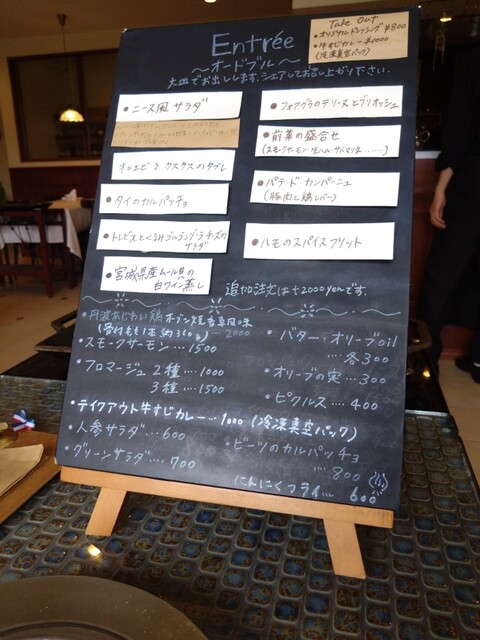 Entrée
～オードブル～
大皿でお出しします、シェアしてお召し上がり下さい。
Take Out
・オリジナルドレッシング ¥800
・牛すじカレー ¥1000
(冷凍真空パック)
・ニース風サラダ
オニエビとクスクスのタブレ
・タイのカルパッチョ
・トレビスとくるみゴルゴンゾーラチーズの
サラダ
・宮城県産ムール貝の
白ワイン蒸し
・フォアグラのテリーヌとブリオッシュ
・前菜の盛合せ
(スモークサーモン 生ハム サバセリネ……)
・パテ・ド・カンパーニュ
(豚肉と鶏レバー)
・ハモのスパイスフリット
追加注文は＋2000yenです。
・丹波あじわい鶏オーブン焼香草風味
(骨付もも1本 約360g)… 2000
・スモークサーモン… 1500
・フロマージュ 2種 … 1000
3種 … 1500
・テイクアウト牛すじカレー… 1000 (冷凍真空パック)
・人参サラダ… 600
・グリーンサラダ… 700
・バター・オリーブoil
… 各300
・オリーブの実… 300
・ピクルス… 400
・ビーツのカルパッチョ
… 800
にんにくフライ… 600